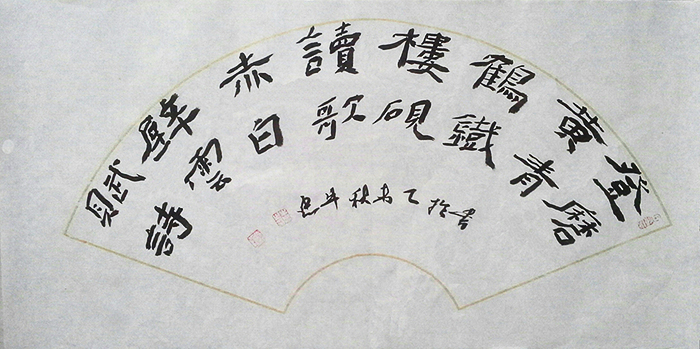 登黃鶴樓讀赤壁賦
磨青鐵硯歌白雲詩
書於乙未秋